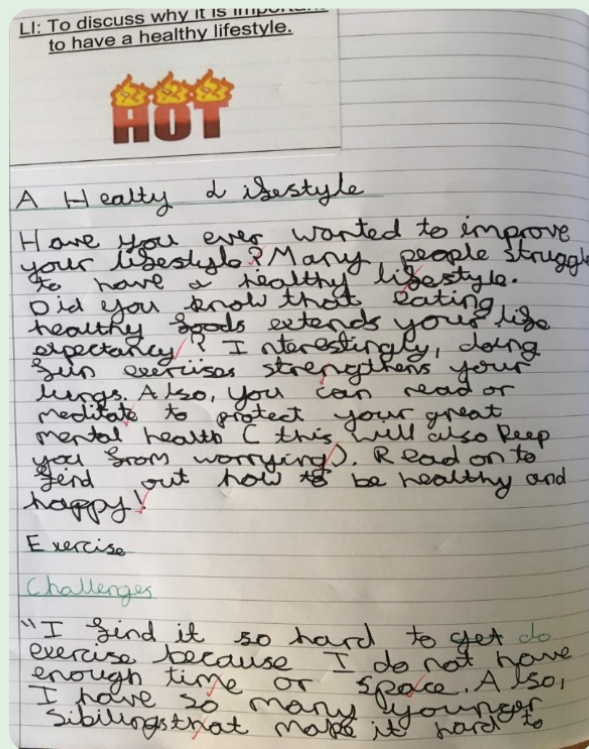 LI: To discuss why it is important
to have a healthy lifestyle.
HOT
A Healty Lifestyle
Have you ever wanted to improve
your lifestyle? Many people struggle
to have a healthy lifestyle.
Did you know that eating
healthy foods extends your life
expectancy? Interestingly, doing
fun exercises strengthens your
lungs. Also, you can read or
meditate to protect your great
mental health (this will also keep
you from worrying). Read on to
find out how to be healthy and
happy!
Exercise
Challenges
"I find it so hard to get do
exercise because I do not have
enough time or space. Also,
I have so many younger
sibilings that make it hard to